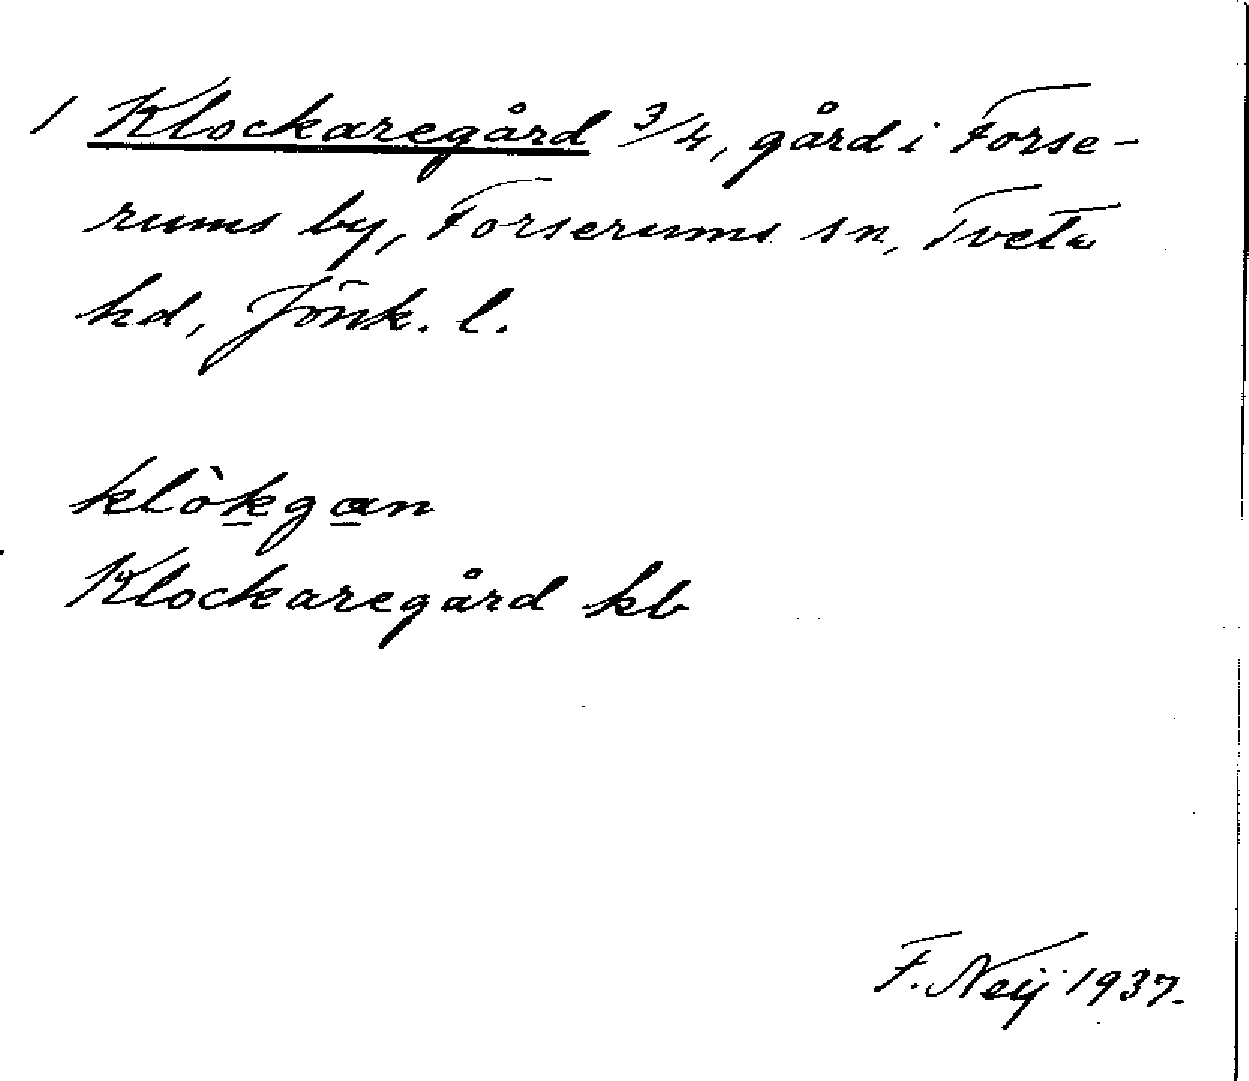 1 Klockaregård 3/4, gård i Forse-
rums by, Forserums sn, Tveta
hd, Jönk. l.
klòkgan
Klockaregård kb
F. Neij 1937.